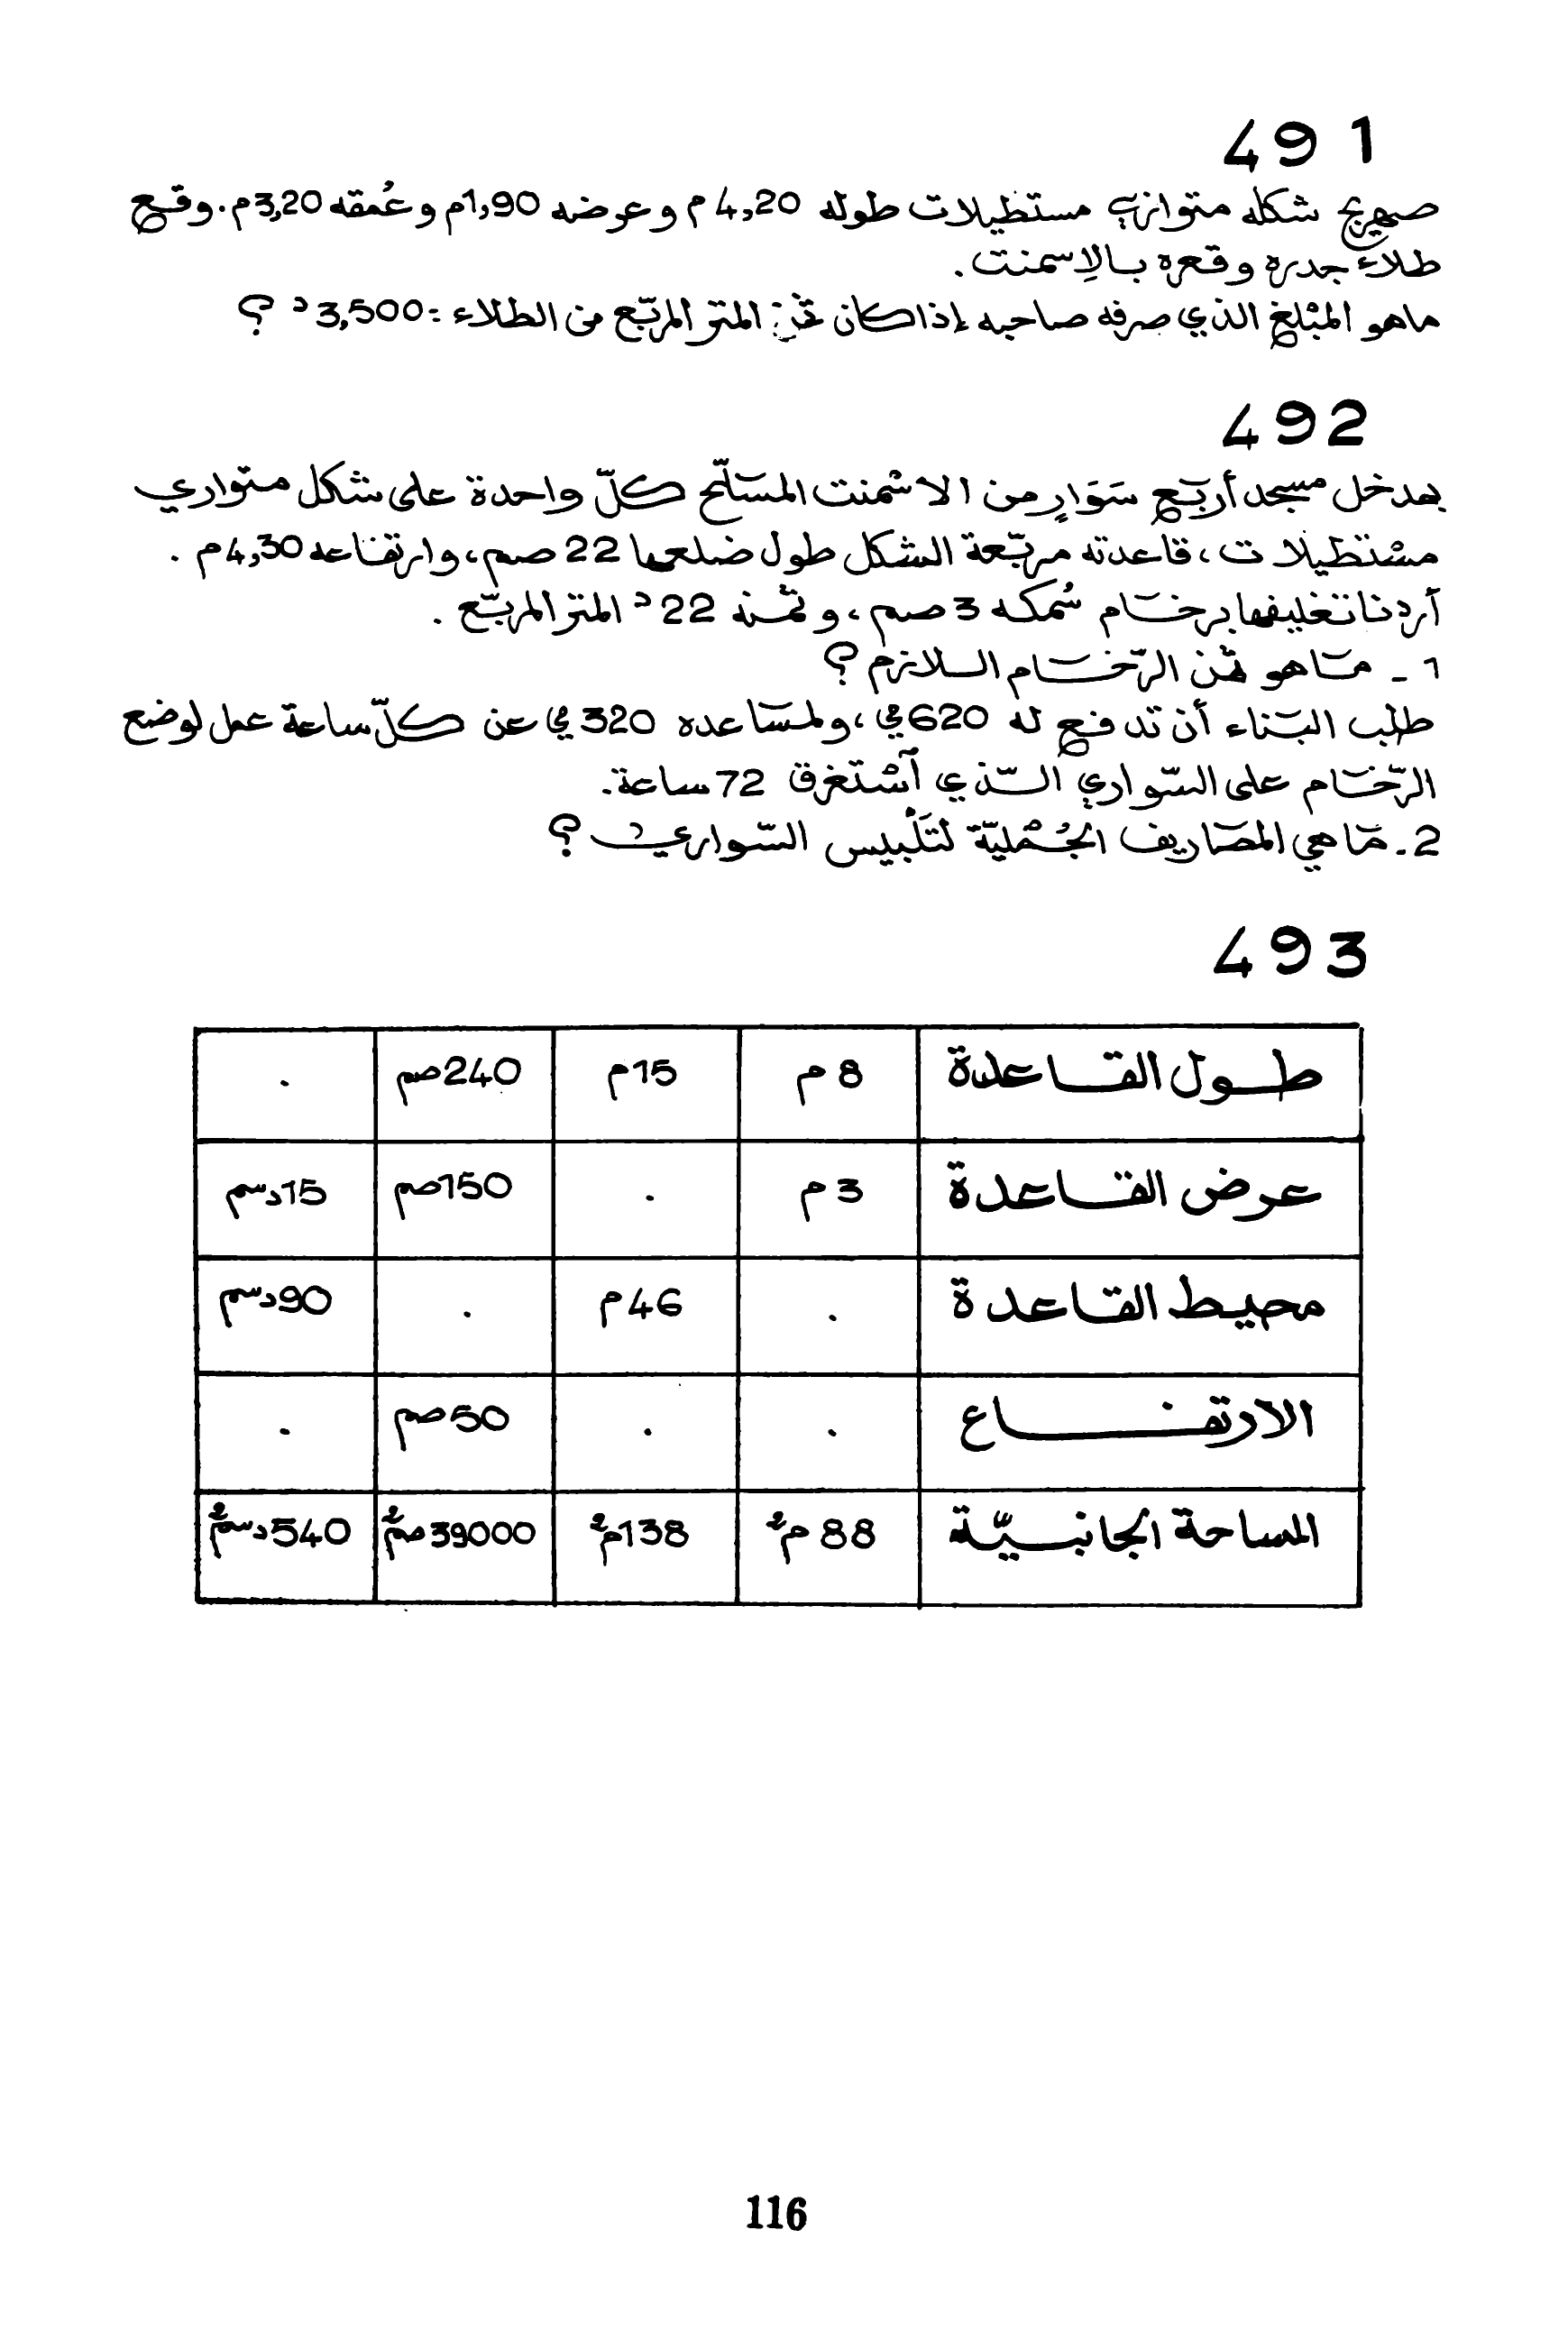 491
صهريج شكله متوازي مستطيلات طوله 4,20 م وعرضه 1,90م وعُمقه 3,20م. وقع
طلاء جدره وقعره بالإسمنت.
ماهو المبْلغ الذي صرفه صاحبه إذا كان ثمن المتر المربّع من الطلاء : 3,500 د ؟
492
بمدخل مسجد أربَع سَوَارٍ من الاسْمنت المسَلّح كلّ واحدة على شكل متواري
مسْتطيلات ، قاعدته مربّعة الشكل طول ضلعها 22 صم ، وارتفاعه 4,30م .
أردنا تغليفها برخام سُمكه 3 صم ، وثمنه 22 د المتر المربّع .
1 _ مَا هو ثمن الرّخام اللازم ؟
طلب البنّاء أن تدفع له 620 مي ، ولمسَاعده 320 مي عن كلّ ساعة عمل لوضع
الرّخام على السّواري الّذي آسْتغرق 72 ساعة.
2 . مَا هي المصَاريف الجُمْليّة لتَلْبيس السّواري ؟
493
طول القاعدة 8 م 15م 240صم .
عرض القاعدة 3 م . 150صم 15دسم
محيط القاعدة . 46م . 90دسم
الارتفاع . . 50صم .
المساحة الجانبيّة 88 م² 138م² 39000صم² 540دسم²
116